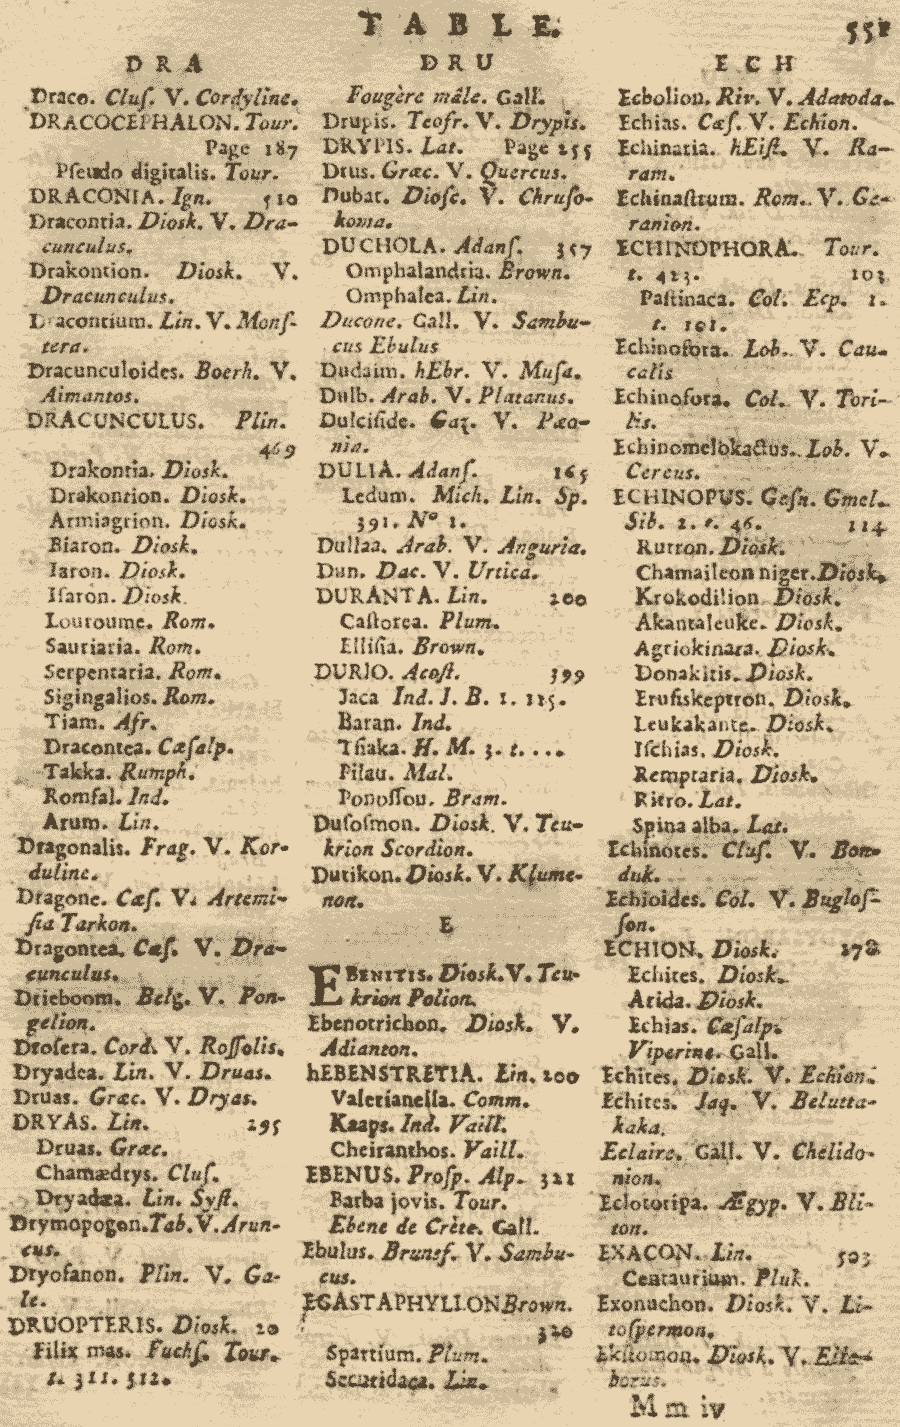 TABLE. 551
DRA
Draco. Cluſ. V. Cordyline.
DRACOCEPHALON. Tour.
Page 187
Pſeudo digitalis. Tour.
DRACONIA. Ign. 510
Dracontia. Diosk. V. Dra-
cunculus.
Drakontion. Diosk. V.
Dracunculus.
Dracontium. Lin. V. Monſ-
tera.
Dracunculoides. Boerh. V.
Aimantos.
DRACUNCULUS. Plin.
469
Drakontia. Diosk.
Drakontion. Diosk.
Armiagrion. Diosk.
Biaron. Diosk.
Iaron. Diosk.
Iſaron. Diosk.
Louroume. Rom.
Sauriaria. Rom.
Serpentaria. Rom.
Sigingalios. Rom.
Tiam. Afr.
Dracontea. Cæſalp.
Takka. Rumph.
Romfal. Ind.
Arum. Lin.
Dragonalis. Frag. V. Kor-
duline.
Dragone. Cæſ. V. Artemi-
ſia Tarkon.
Dragontea. Cæſ. V. Dra-
cunculus.
Drieboom. Belg. V. Pon-
gelion.
Droſera. Cord. V. Roſſolis.
Dryadea. Lin. V. Druas.
Druas. Græc. V. Dryas.
DRYAS. Lin. 295
Druas. Græc.
Chamædrys. Cluſ.
Dryadæa. Lin. Syſt.
Drymopogon. Tab. V. Arun-
cus.
Dryofanon. Plin. V. Ga-
le.
DRUOPTERIS. Diosk. 20
Filix mas. Fuchſ. Tour.
t. 311. 312.
DRU
Fougère mâle. Gall.
Drupis. Teofr. V. Drypis.
DRYPIS. Lat. Page 255
Drus. Græc. V. Quercus.
Dubat. Dioſc. V. Chruſo-
koma.
DUCHOLA. Adanſ. 357
Omphalandria. Brown.
Omphalea. Lin.
Ducone. Gall. V. Sambu-
cus Ebulus
Dudaim. hEbr. V. Muſa.
Dulb. Arab. V. Platanus.
Dulciſide. Gaz. V. Pæo-
nia.
DULIA. Adanſ. 165
Ledum. Mich. Lin. Sp.
391. N° 1.
Dullaa. Arab. V. Anguria.
Dun. Dac. V. Urtica.
DURANTA. Lin. 200
Caſtorea. Plum.
Elliſia. Brown.
DURIO. Acoſt. 399
Jaca Ind. J. B. 1. 115.
Baran. Ind.
Tſiaka. H. M. 3. t. ...
Pilau. Mal.
Ponoſſou. Bram.
Duſoſmon. Diosk. V. Teu-
krion Scordion.
Dutikon. Diosk. V. Klume-
non.
E
EBENITIS. Diosk. V. Teu-
krion Polion.
Ebenotrichon. Diosk. V.
Adianton.
hEBENSTRETIA. Lin. 200
Valerianella. Comm.
Kaaps. Ind. Vaill.
Cheiranthos. Vaill.
EBENUS. Proſp. Alp. 321
Barba jovis. Tour.
Ebene de Crète. Gall.
Ebulus. Brunsf. V. Sambu-
cus.
EGASTAPHYLLON Brown.
320
Spartium. Plum.
Securidaca. Lin.
ECH
Ecbolion. Riv. V. Adatoda.
Echias. Cæſ. V. Echion.
Echinaria. hEiſt. V. Ra-
ram.
Echinaſtrum. Rom. V. Ge-
ranion.
ECHINOPHORA. Tour.
t. 423. 103
Paſtinaca. Col. Ecp. 1.
t. 101.
Echinofora. Lob. V. Cau-
calis
Echinofora. Col. V. Tori-
lis.
Echinomelokactus. Lob. V.
Cereus.
ECHINOPUS. Geſn. Gmel.
Sib. 2. t. 46. 114
Rutron. Diosk.
Chamaileon niger. Diosk.
Krokodilion Diosk.
Akantaleuke. Diosk.
Agriokinara. Diosk.
Donakitis. Diosk.
Eruſiskeptron. Diosk.
Leukakante. Diosk.
Iſchias. Diosk.
Rempraria. Diosk.
Ritro. Lat.
Spina alba. Lat.
Echinotes. Cluſ. V. Bon-
duk.
Echioides. Col. V. Bugloſ-
ſon.
ECHION. Diosk. 178
Echites. Diosk.
Arida. Diosk.
Echias. Cæſalp.
Viperine. Gall.
Echites. Diosk. V. Echion.
Echites. Jaq. V. Belutta-
kaka.
Eclaire. Gall. V. Chelido-
nion.
Eclotoripa. Ægyp. V. Bli-
ton.
EXACON. Lin. 503
Centaurium. Pluk.
Exonuchon. Diosk. V. Li-
toſpermon.
Ekſtomon. Diosk. V. Elle-
borus.
M m iv